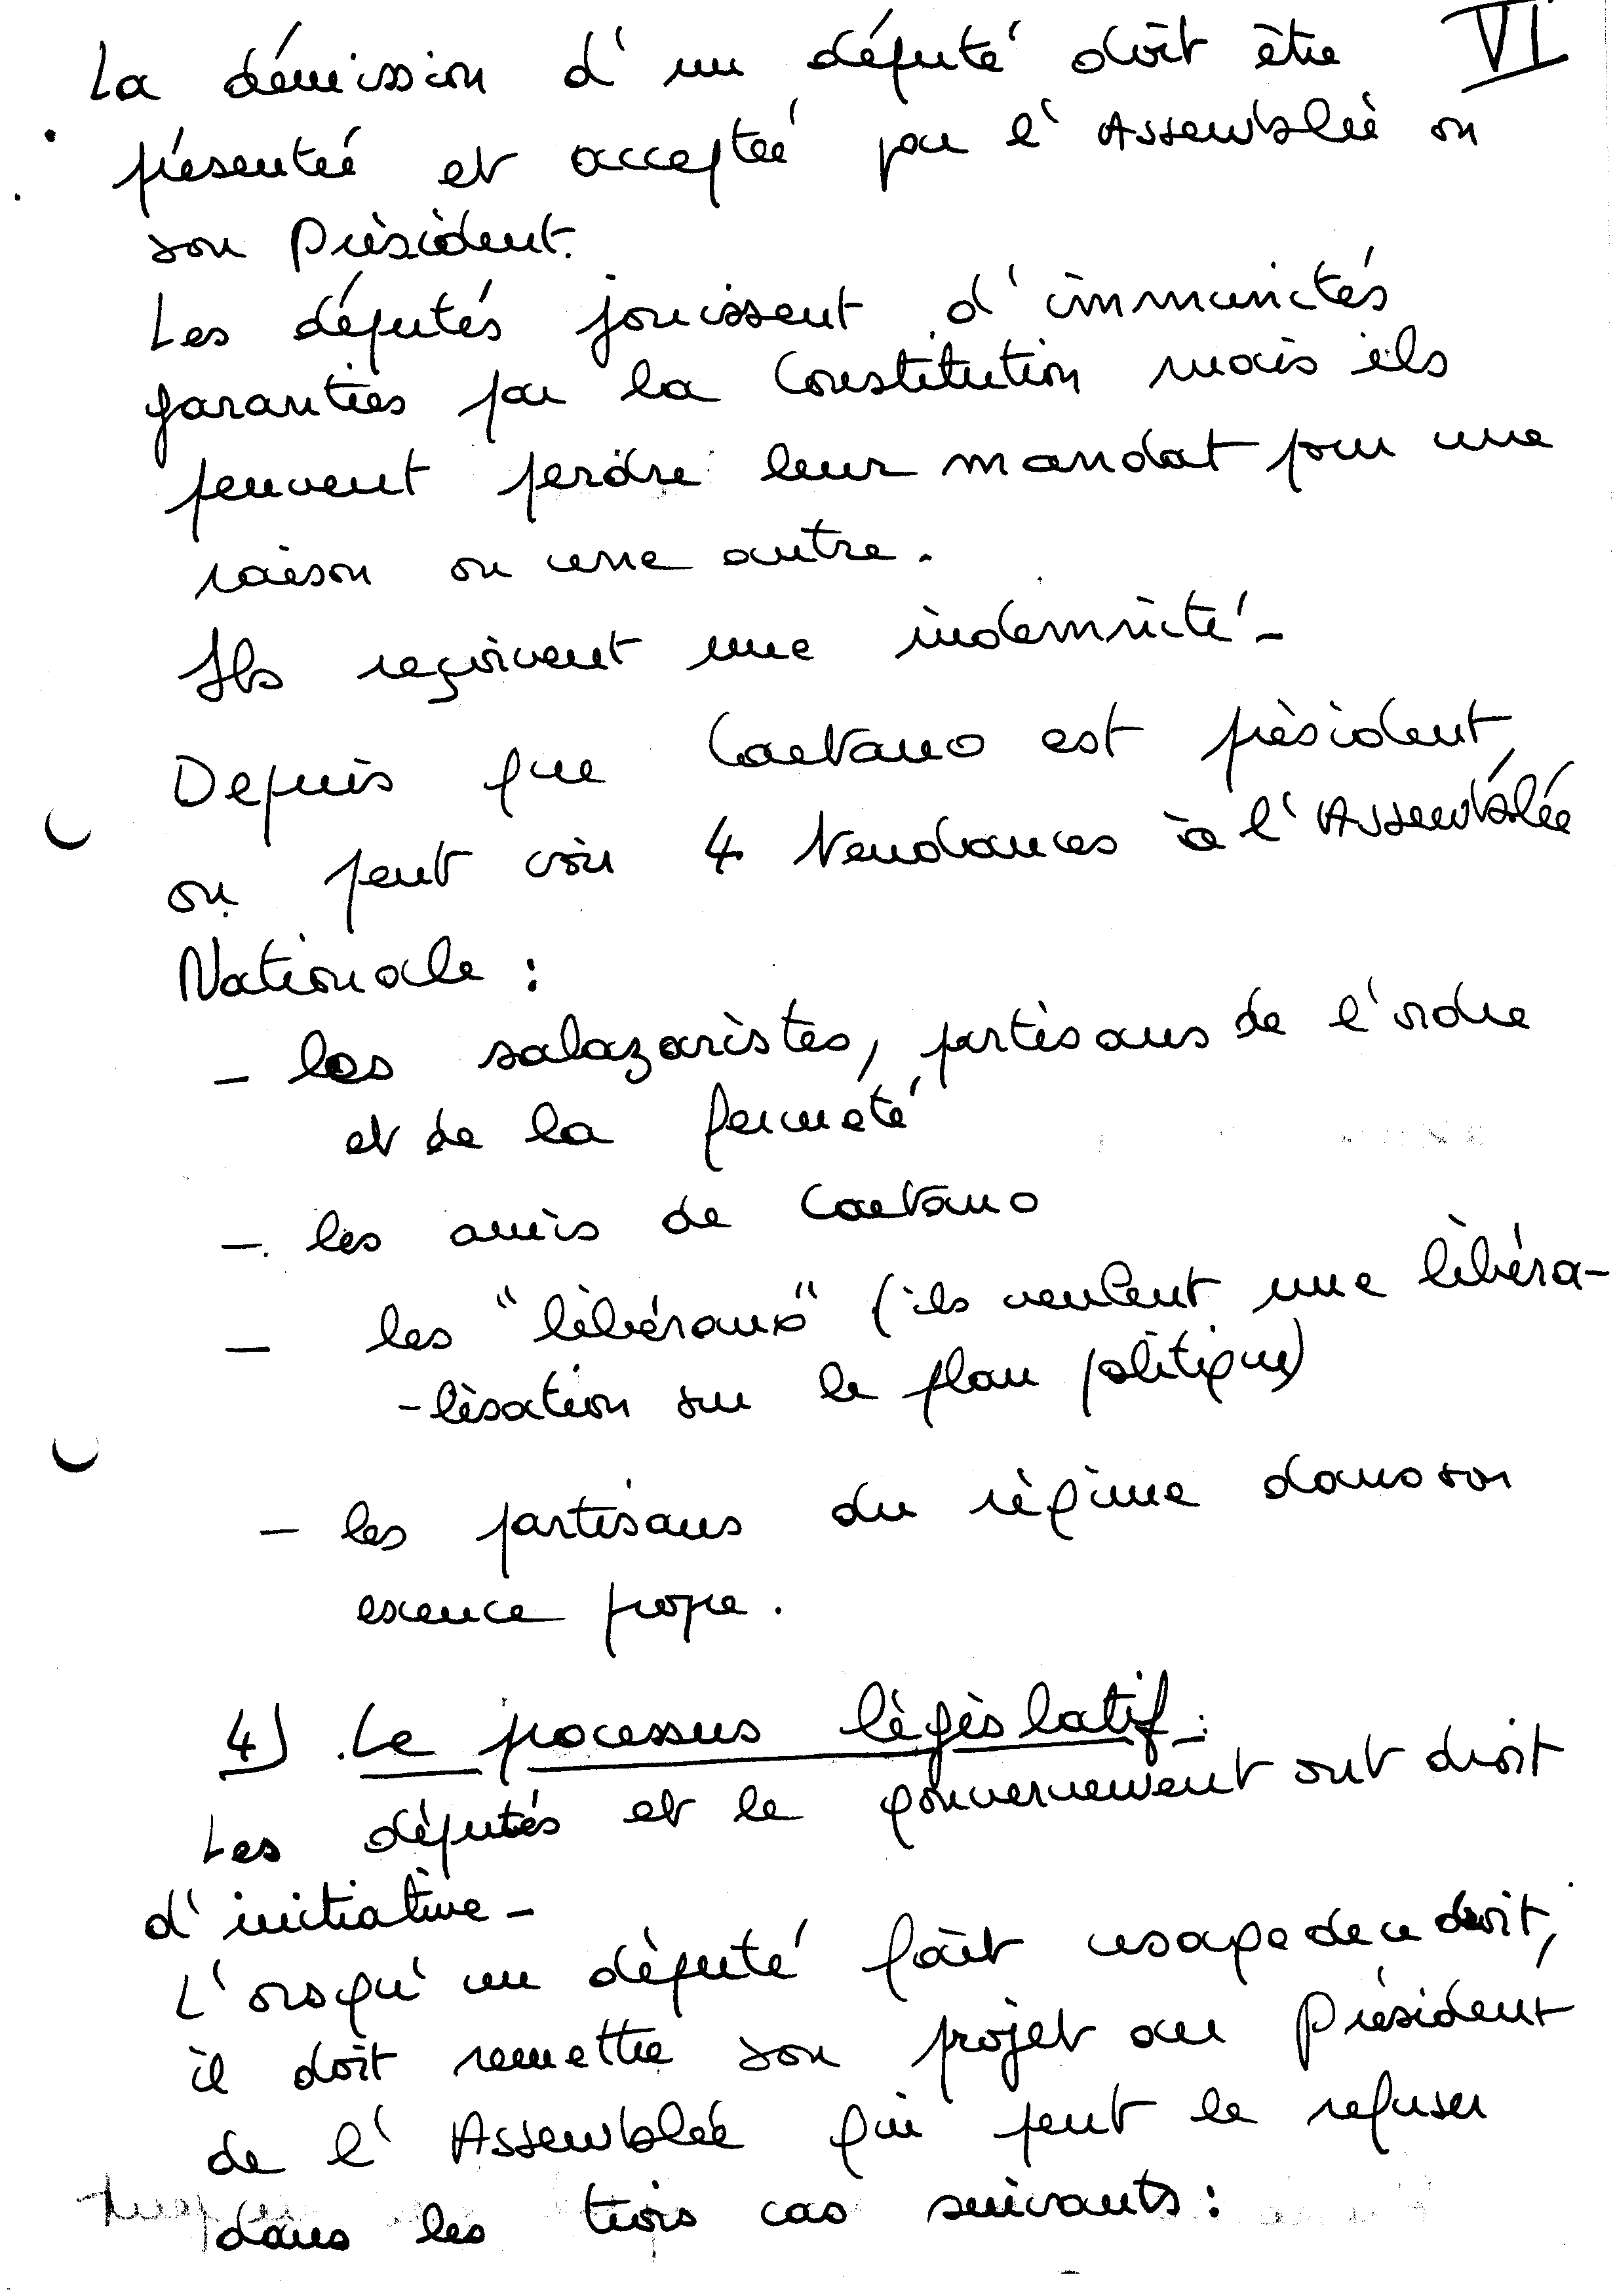 VI
La démission d'un député doit être
présentée et acceptée par l'Assemblée ou
son Président.
Les députés jouissent d'immunités
garanties par la Constitution mais ils
peuvent perdre leur mandat pour une
raison ou une autre.
Ils reçoivent une indemnité-
Depuis que Caetano est président,
on peut voir 4 tendances à l'Assemblée
Nationale :
- les salazaristes, partisans de l'ordre
et de la fermeté
- les amis de Caetano
- les "libéraux" (ils veulent une libéra-
-lisation sur le plan politique)
- les partisans du régime dans son
essence propre.
4) Le processus législatif:
Les députés et le gouvernement ont droit
d'initiative-
L'orsqu'un député fait usage de ce droit,
il doit remettre son projet au Président
de l'Assemblée qui peut le refuser
dans les trois cas suivants :